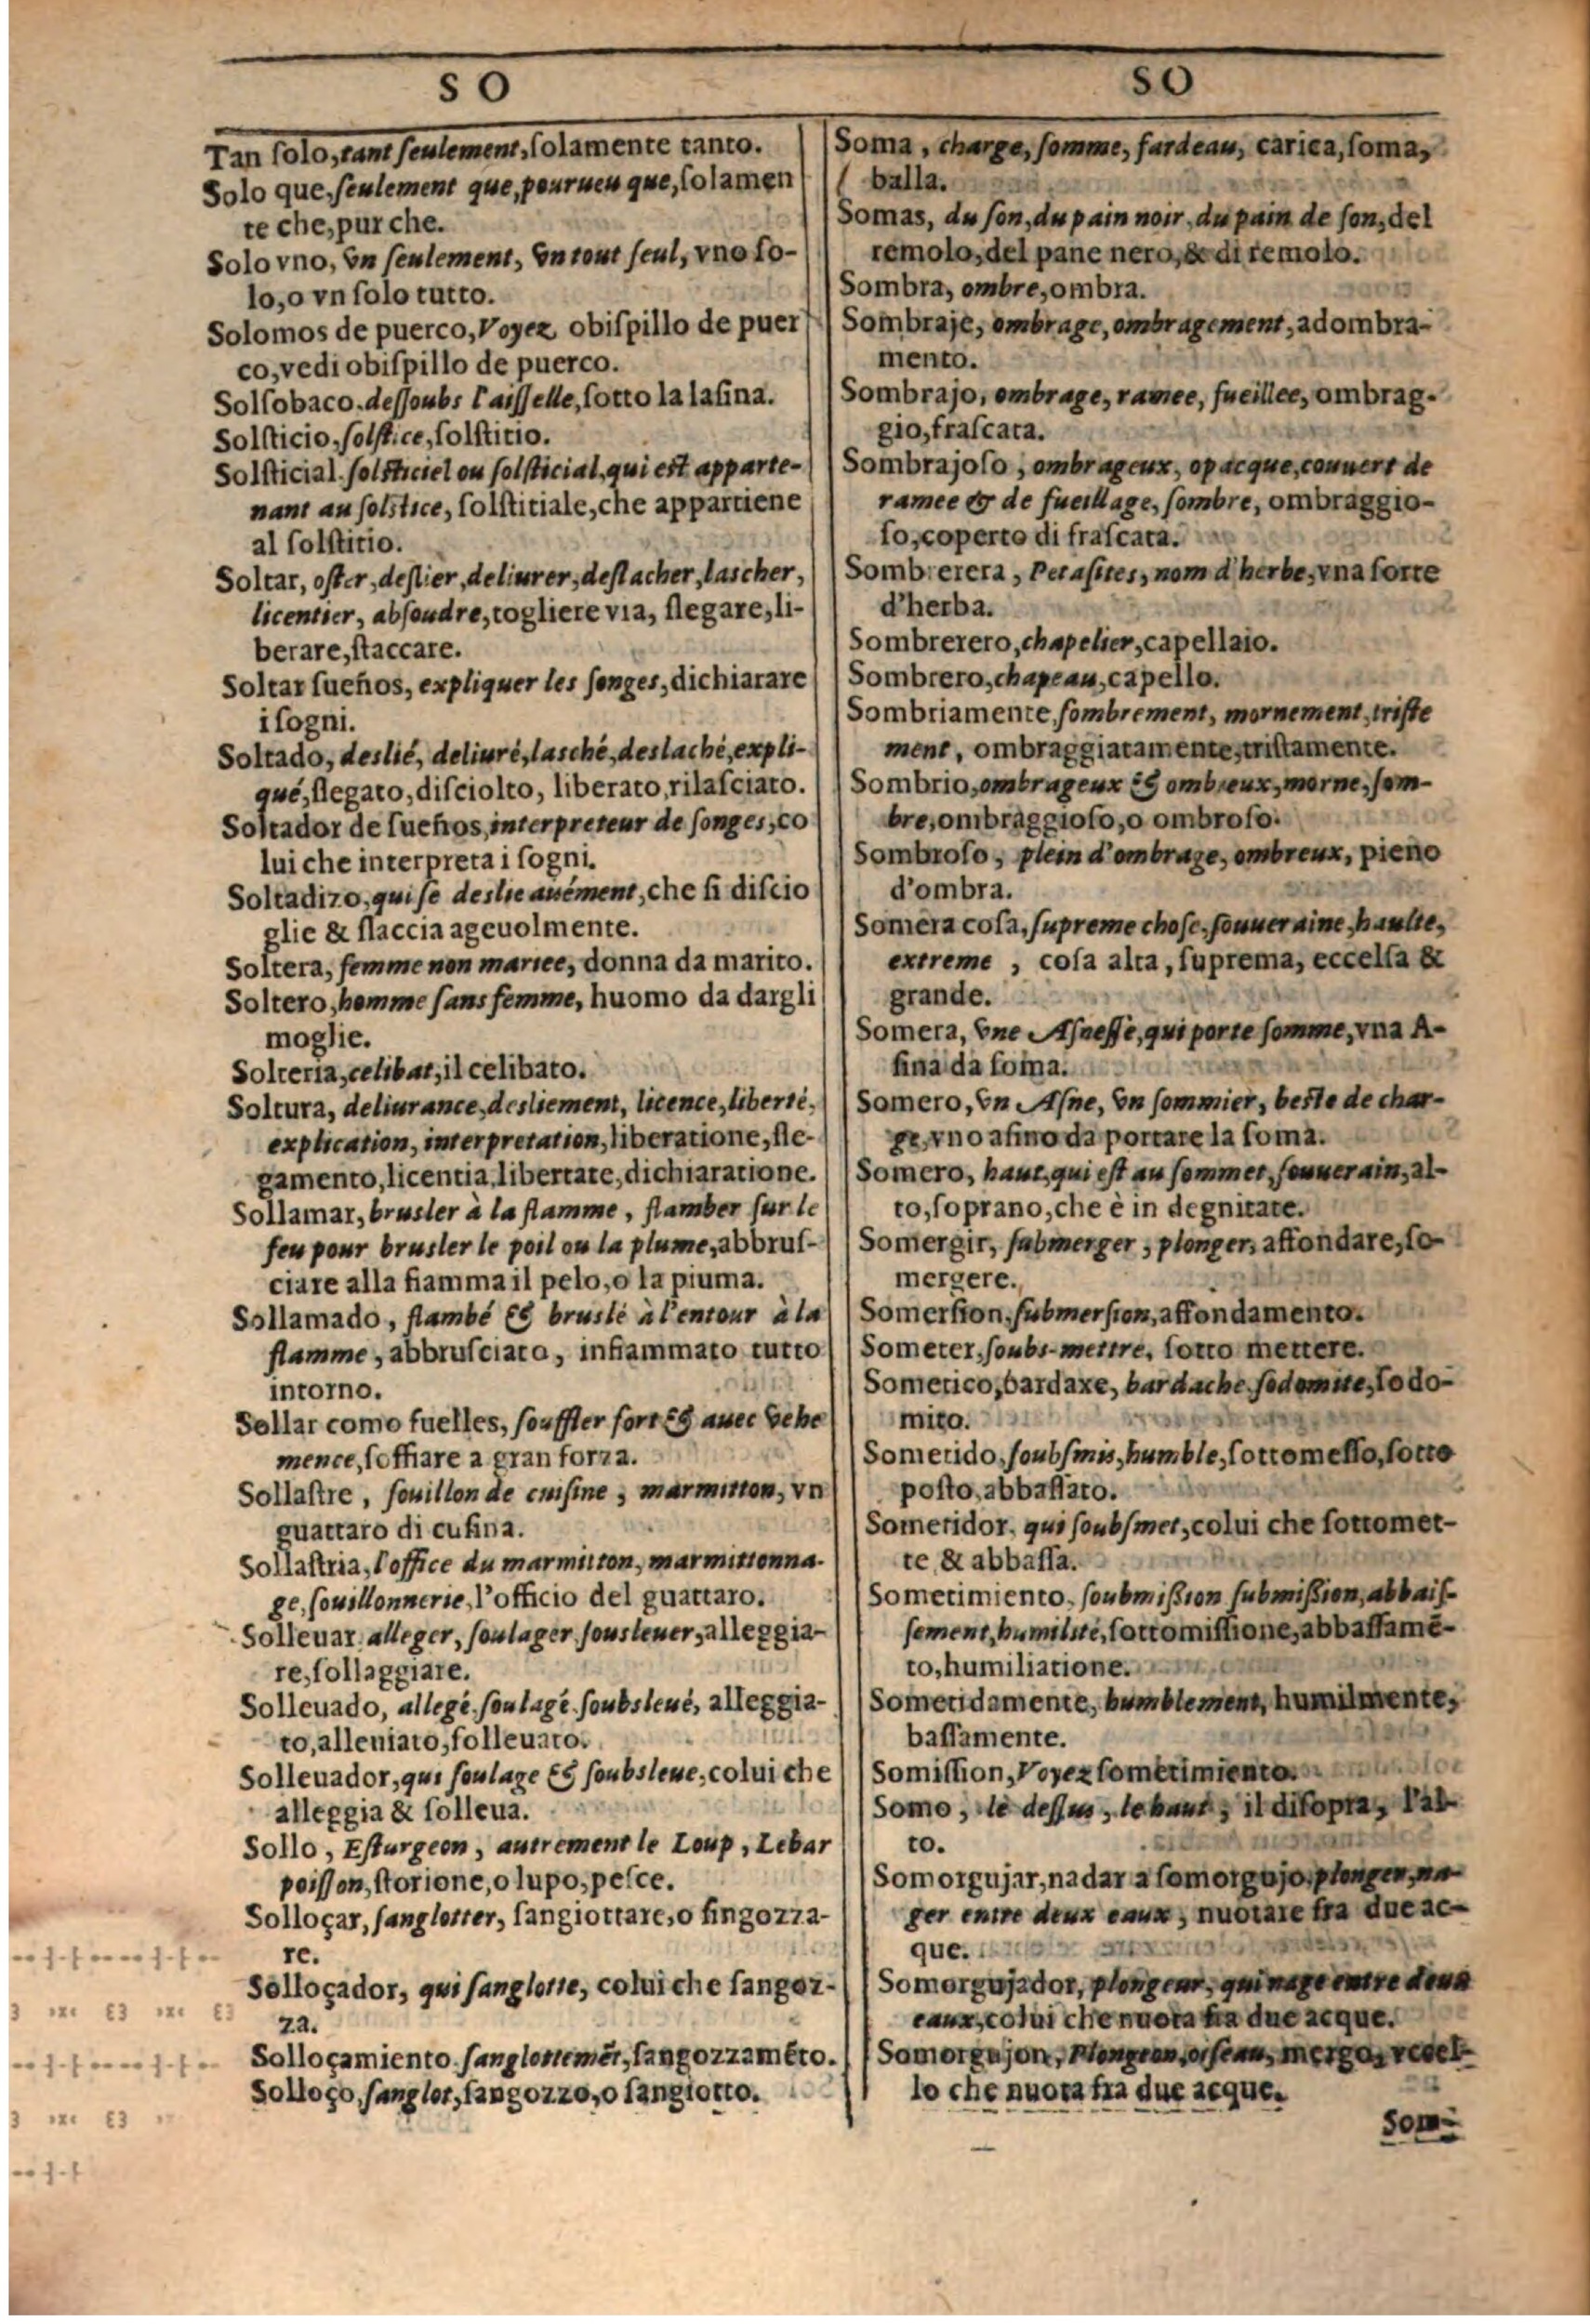 S O
Tan ſolo, tant ſeulement, ſolamente tanto.
Solo que, ſeulement que, pourueu que, ſolamen
te che, pur che.
Solo vno, vn ſeulement, vn tout ſeul, vno ſo-
lo, o vn ſolo tutto.
Solomos de puerco, Voyez obiſpillo de puer
co, vedi obiſpillo de puerco.
Solſobaco. deſſoubs l'aiſſelle, ſotto la laſina.
Solſticio, ſolſtice, ſolſtitio.
Solſticial. ſolſticiel ou ſolſticial, qui eſt apparte-
nant au ſolſtice, ſolſtitiale, che appartiene
al ſolſtitio.
Soltar, oſter, deſlier, deliurer, deſlacher, laſcher,
licentier, abſoudre, togliere via, ſlegare, li-
berare, ſtaccare.
Soltar ſueños, expliquer les ſonges, dichiarare
i ſogni.
Soltado, deslié, deliuré, laſché, deslaché, expli-
qué, ſlegato, diſciolto, liberato, rilaſciato.
Soltador de ſueños, interpreteur de ſonges, co
lui che interpreta i ſogni.
Soltadizo, qui ſe deslie auément, che ſi diſcio
glie & ſlaccia ageuolmente.
Soltera, femme non mariee, donna da marito.
Soltero, homme ſans femme, huomo da dargli
moglie.
Solteria, celibat, il celibato.
Soltura, deliurance, desliement, licence, liberté,
explication, interpretation, liberatione, ſle-
gamento, licentia, libertate, dichiaratione.
Sollamar, brusler à la flamme, flamber ſur le
feu pour brusler le poil ou la plume, abbruſ-
ciare alla fiamma il pelo, o la piuma.
Sollamado, flambé & bruslé à l'entour à la
flamme, abbruſciato, infiammato tutto
intorno.
Sollar como fuelles, ſouffler fort & auec vehe
mence, ſoffiare a gran forza.
Sollaſtre, ſouillon de cuiſine, marmitton, vn
guattaro di cuſina.
Sollaſtria, l'office du marmitton, marmittonna-
ge, ſouillonnerie, l'officio del guattaro.
Solleuar. alleger, ſoulager ſousleuer, alleggia-
re, ſollaggiare.
Solleuado, allegé. ſoulagé. ſoubsleué, alleggia-
to, alleuiato, ſolleuato.
Solleuador, qui ſoulage & ſoubsleue, colui che
alleggia & ſolleua.
Sollo, Eſturgeon, autrement le Loup, Lebar
poiſſon, ſtorione, o lupo, peſce.
Solloçar, ſanglotter, ſangiottare, o ſingozza-
re.
Solloçador, qui ſanglotte, colui che ſangoz-
za.
Solloçamiento. ſanglottemẽt, ſangozzamẽto.
Solloço, ſanglot, ſangozzo, o ſangiotto.
S O
Soma, charge, ſomme, fardeau, carica, ſoma,
balla.
Somas, du ſon, du pain noir, du pain de ſon, del
remolo, del pane nero, & di remolo.
Sombra, ombre, ombra.
Sombraje, ombrage, ombragement, adombra-
mento.
Sombrajo, ombrage, ramee, fueillee, ombrag-
gio, fraſcata.
Sombrajoſo, ombrageux, opacque, couuert de
ramee & de fueillage, ſombre, ombraggio-
ſo, coperto di fraſcata.
Sombrerera, Petaſites, nom d'herbe, vna ſorte
d'herba.
Sombrerero, chapelier, capellaio.
Sombrero, chapeau, capello.
Sombriamente, ſombrement, mornement, triſte
ment, ombraggiatamente, triſtamente.
Sombrio, ombrageux & ombreux, morne, ſom-
bre, ombraggioſo, o ombroſo.
Sombroſo, plein d'ombrage, ombreux, pieno
d'ombra.
Somera coſa, ſupreme choſe, ſouueraine, haulte,
extreme, coſa alta, ſuprema, eccelſa &
grande.
Somera, vne Aſneſſe, qui porte ſomme, vna A-
ſina da ſoma.
Somero, vn Aſne, vn ſommier, beſte de char-
ge, vno aſino da portare la ſoma.
Somero, haut, qui eſt au ſommet, ſouuerain, al-
to, ſoprano, che è in degnitate.
Somergir, ſubmerger, plonger, affondare, ſo-
mergere.
Somerſion, ſubmerſion, affondamento.
Someter, ſoubs-mettre, ſotto mettere.
Sometico, bardaxe, bardache. ſodomite, ſodo-
mito.
Sometido, ſoubſmis, humble, ſottomeſſo, ſotto
poſto, abbaſſato.
Sometidor, qui ſoubſmet, colui che ſottomet-
te, & abbaſſa.
Sometimiento, ſoubmiſſion ſubmiſſion, abbaiſ-
ſement, humilité, ſottomiſſione, abbaſſamẽ-
to, humiliatione.
Sometidamente, humblement, humilmente,
baſſamente.
Somiſſion, Voyez ſometimiento.
Somo, le deſſus, le haut, il diſopra, l'al-
to.
Somorgujar, nadar a ſomorgujo, plonger, na-
ger entre deux eaux, nuotare fra due ac-
que.
Somorgujador, plongeur, qui nage entre deux
eaux, colui che nuota fra due acque.
Somorgujon, Plongeon, oiſeau, mergo, vccel-
lo che nuota fra due acque.
Som-